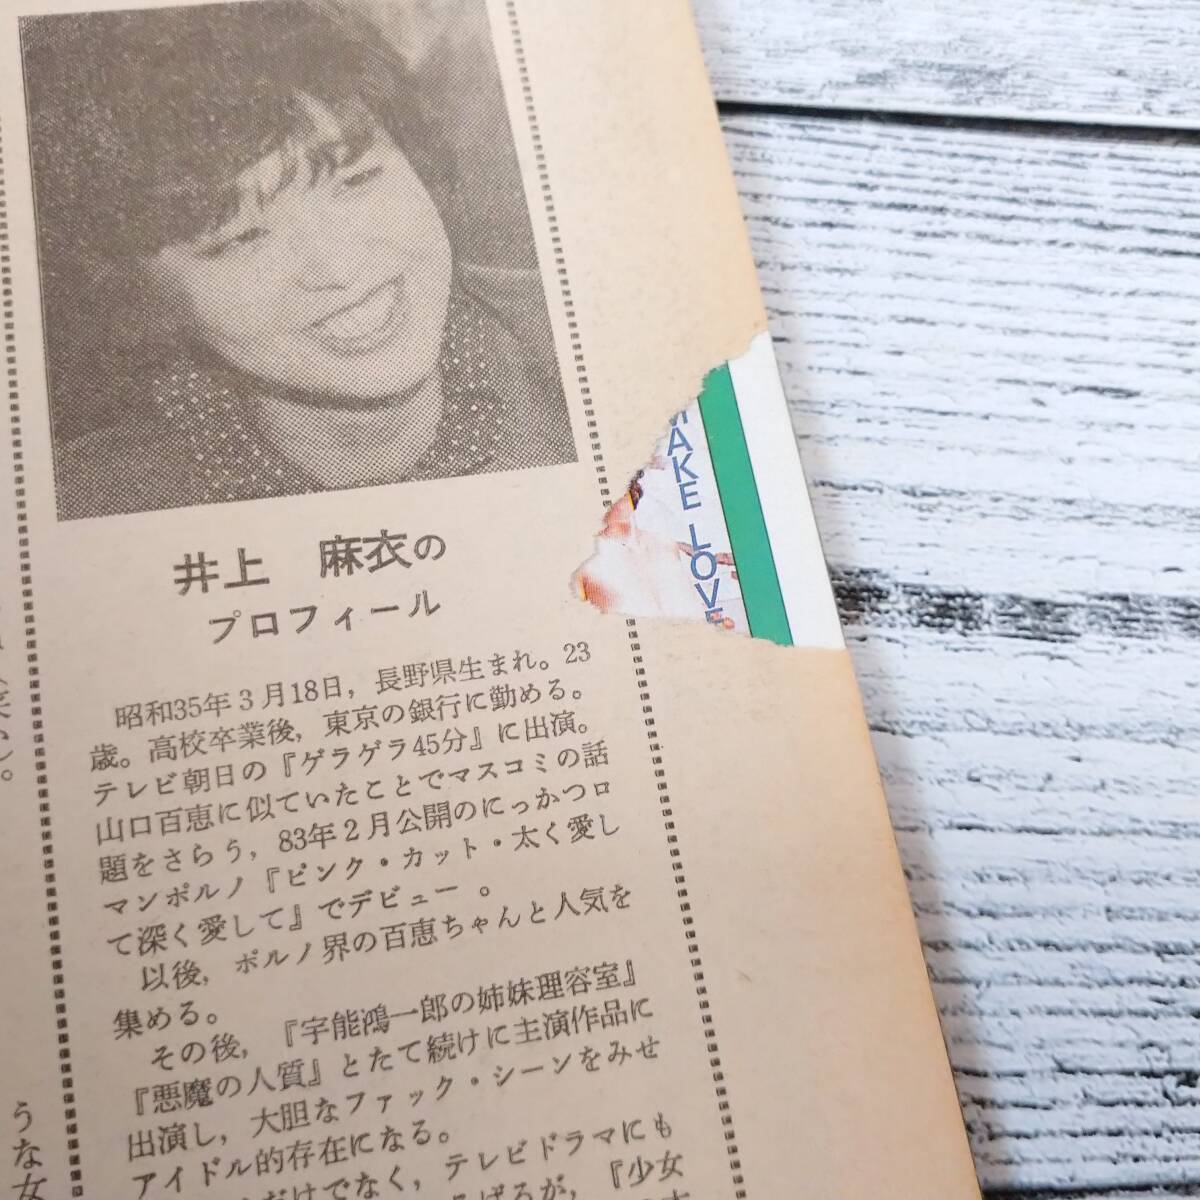 井上 麻衣の
プロフィール
昭和35年3月18日，長野県生まれ。23
歳。高校卒業後，東京の銀行に勤める。
テレビ朝日の『ゲラゲラ45分』に出演。
山口百恵に似ていたことでマスコミの話
題をさらう，83年2月公開のにっかつロ
マンポルノ『ピンク・カット・太く愛し
て深く愛して』でデビュー。
以後，ポルノ界の百恵ちゃんと人気を
集める。
その後，『宇能鴻一郎の姉妹理容室』
『悪魔の人質』とたて続けに主演作品に
出演し，大胆なファック・シーンをみせ
アイドル的存在になる。
だけでなく，テレビドラマにも
るが，『少女
MAKE LOVE
うな女